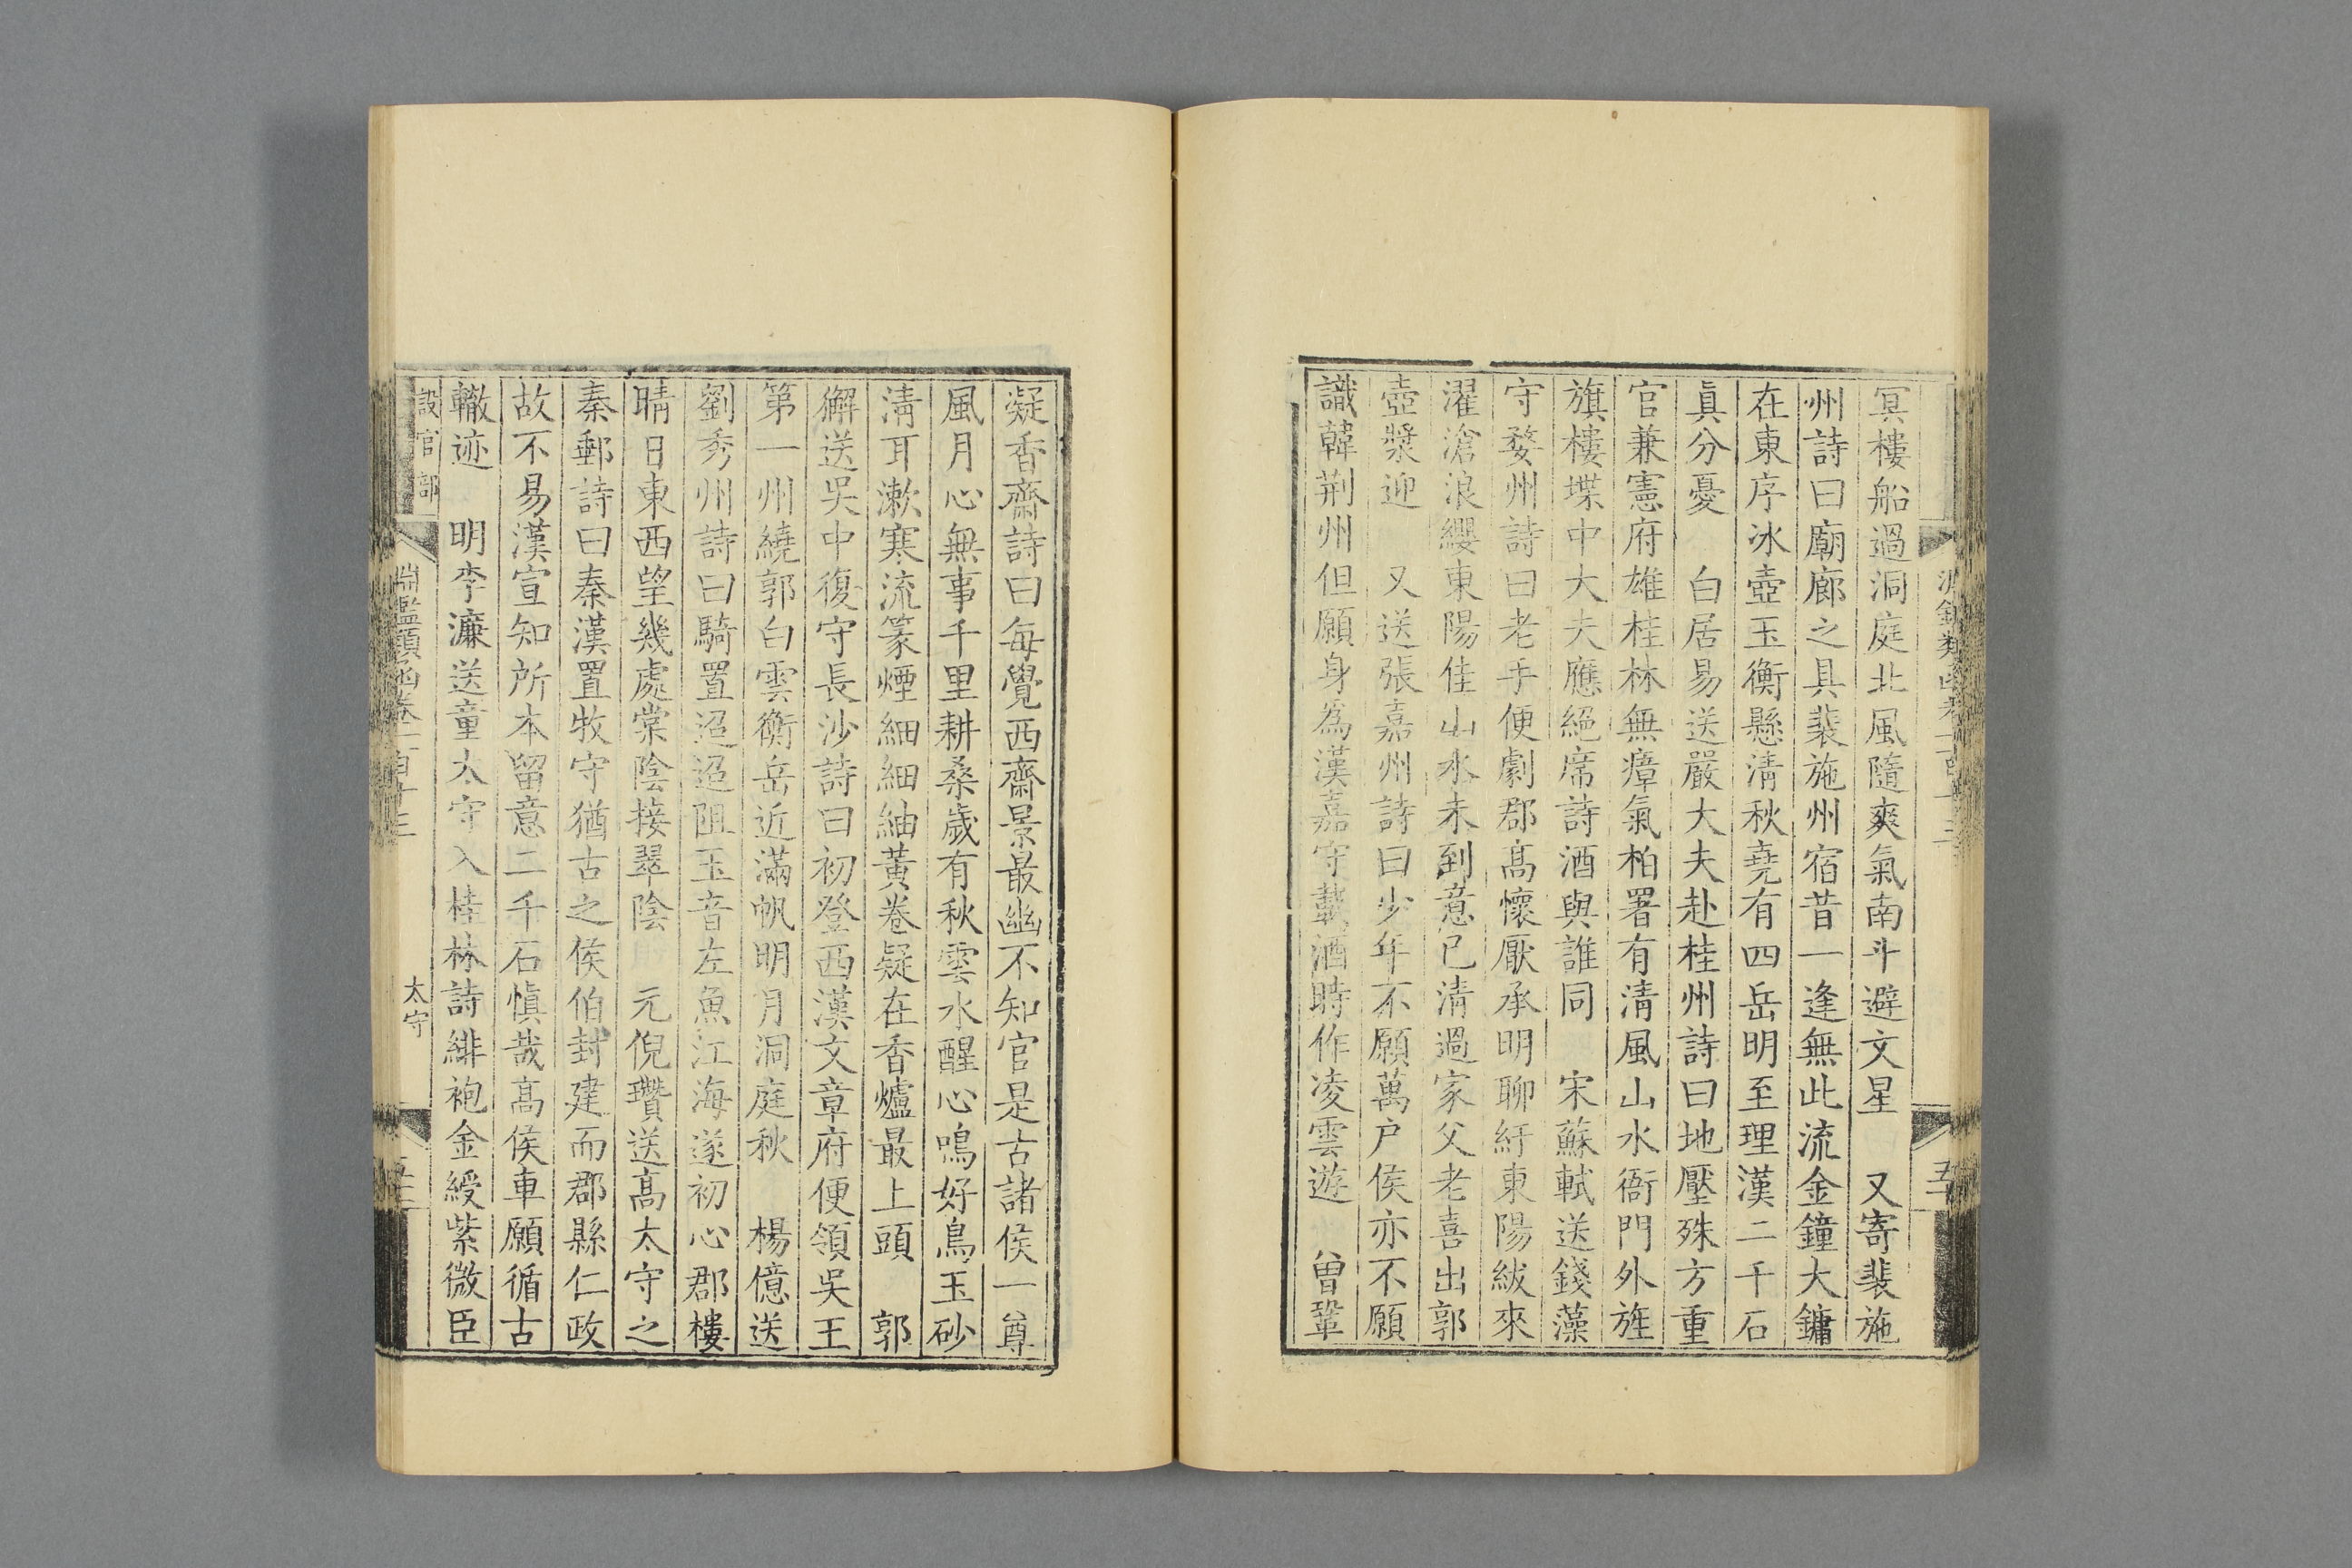 冥樓船過洞庭北風隨爽氣南斗避文星　又寄裴施
州詩曰廟廊之具裴施州宿昔一逢無此流金鐘大鏞
在東序冰壺玉衡懸清秋堯有四岳明至理漢二千石
眞分憂　白居易送嚴大夫赴桂州詩曰地壓殊方重
官兼憲府雄桂林無瘴氣柏署有清風山水衙門外旌
旗樓堞中大夫應絕席詩酒與誰同　宋蘇軾送錢藻
守婺州詩曰老手便劇郡高懷厭承明聊紆東陽紱來
濯滄浪纓東陽佳山水未到意已清過家父老喜出郭
壺漿迎　又送張嘉州詩曰少年不願萬户侯亦不願
識韓荊州但願身爲漢嘉守載酒時作凌雲遊　曾鞏
凝香齋詩曰每覺西齋景最幽不知官是古諸侯一尊
風月心無事千里耕桑歲有秋雲水醒心鳴好鳥玉砂
清耳漱寒流篆煙細細紬黃卷疑在香爐最上頭　郭
獬送吳中復守長沙詩曰初登西漢文章府便領吳王
第一州繞郭白雲衡岳近滿帆明月洞庭秋　楊億送
劉秀州詩曰騎置迢迢阻玉音左魚江海遂初心郡樓
晴日東西望幾處棠陰接翠陰　元倪瓚送高太守之
秦郵詩曰秦漢置牧守猶古之侯伯封建而郡縣仁政
故不易漢宣知所本留意二千石愼哉高侯車願循古
轍迹　明李濂送童太守入桂林詩緋袍金綬紫微臣
設官部
淵鑑類函卷一百十三
太守